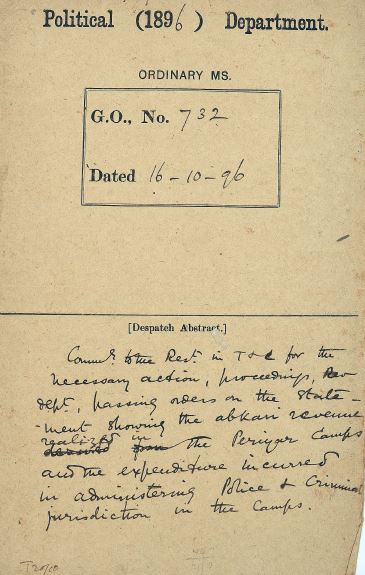 Political (1896) Department.
ORDINARY MS.
G.O., No. 732
Dated 16-10-96
[Despatch Abstract.]
Commd. to the Rest. in T & C for the
necessary action, proceedings, Rev
dept, passing orders on the state-
-ment showing the abkari revenue
realized in
derived from the Periyar Camps
and the expenditure incurred
in administering Police & Criminal
jurisdiction in the Camps.